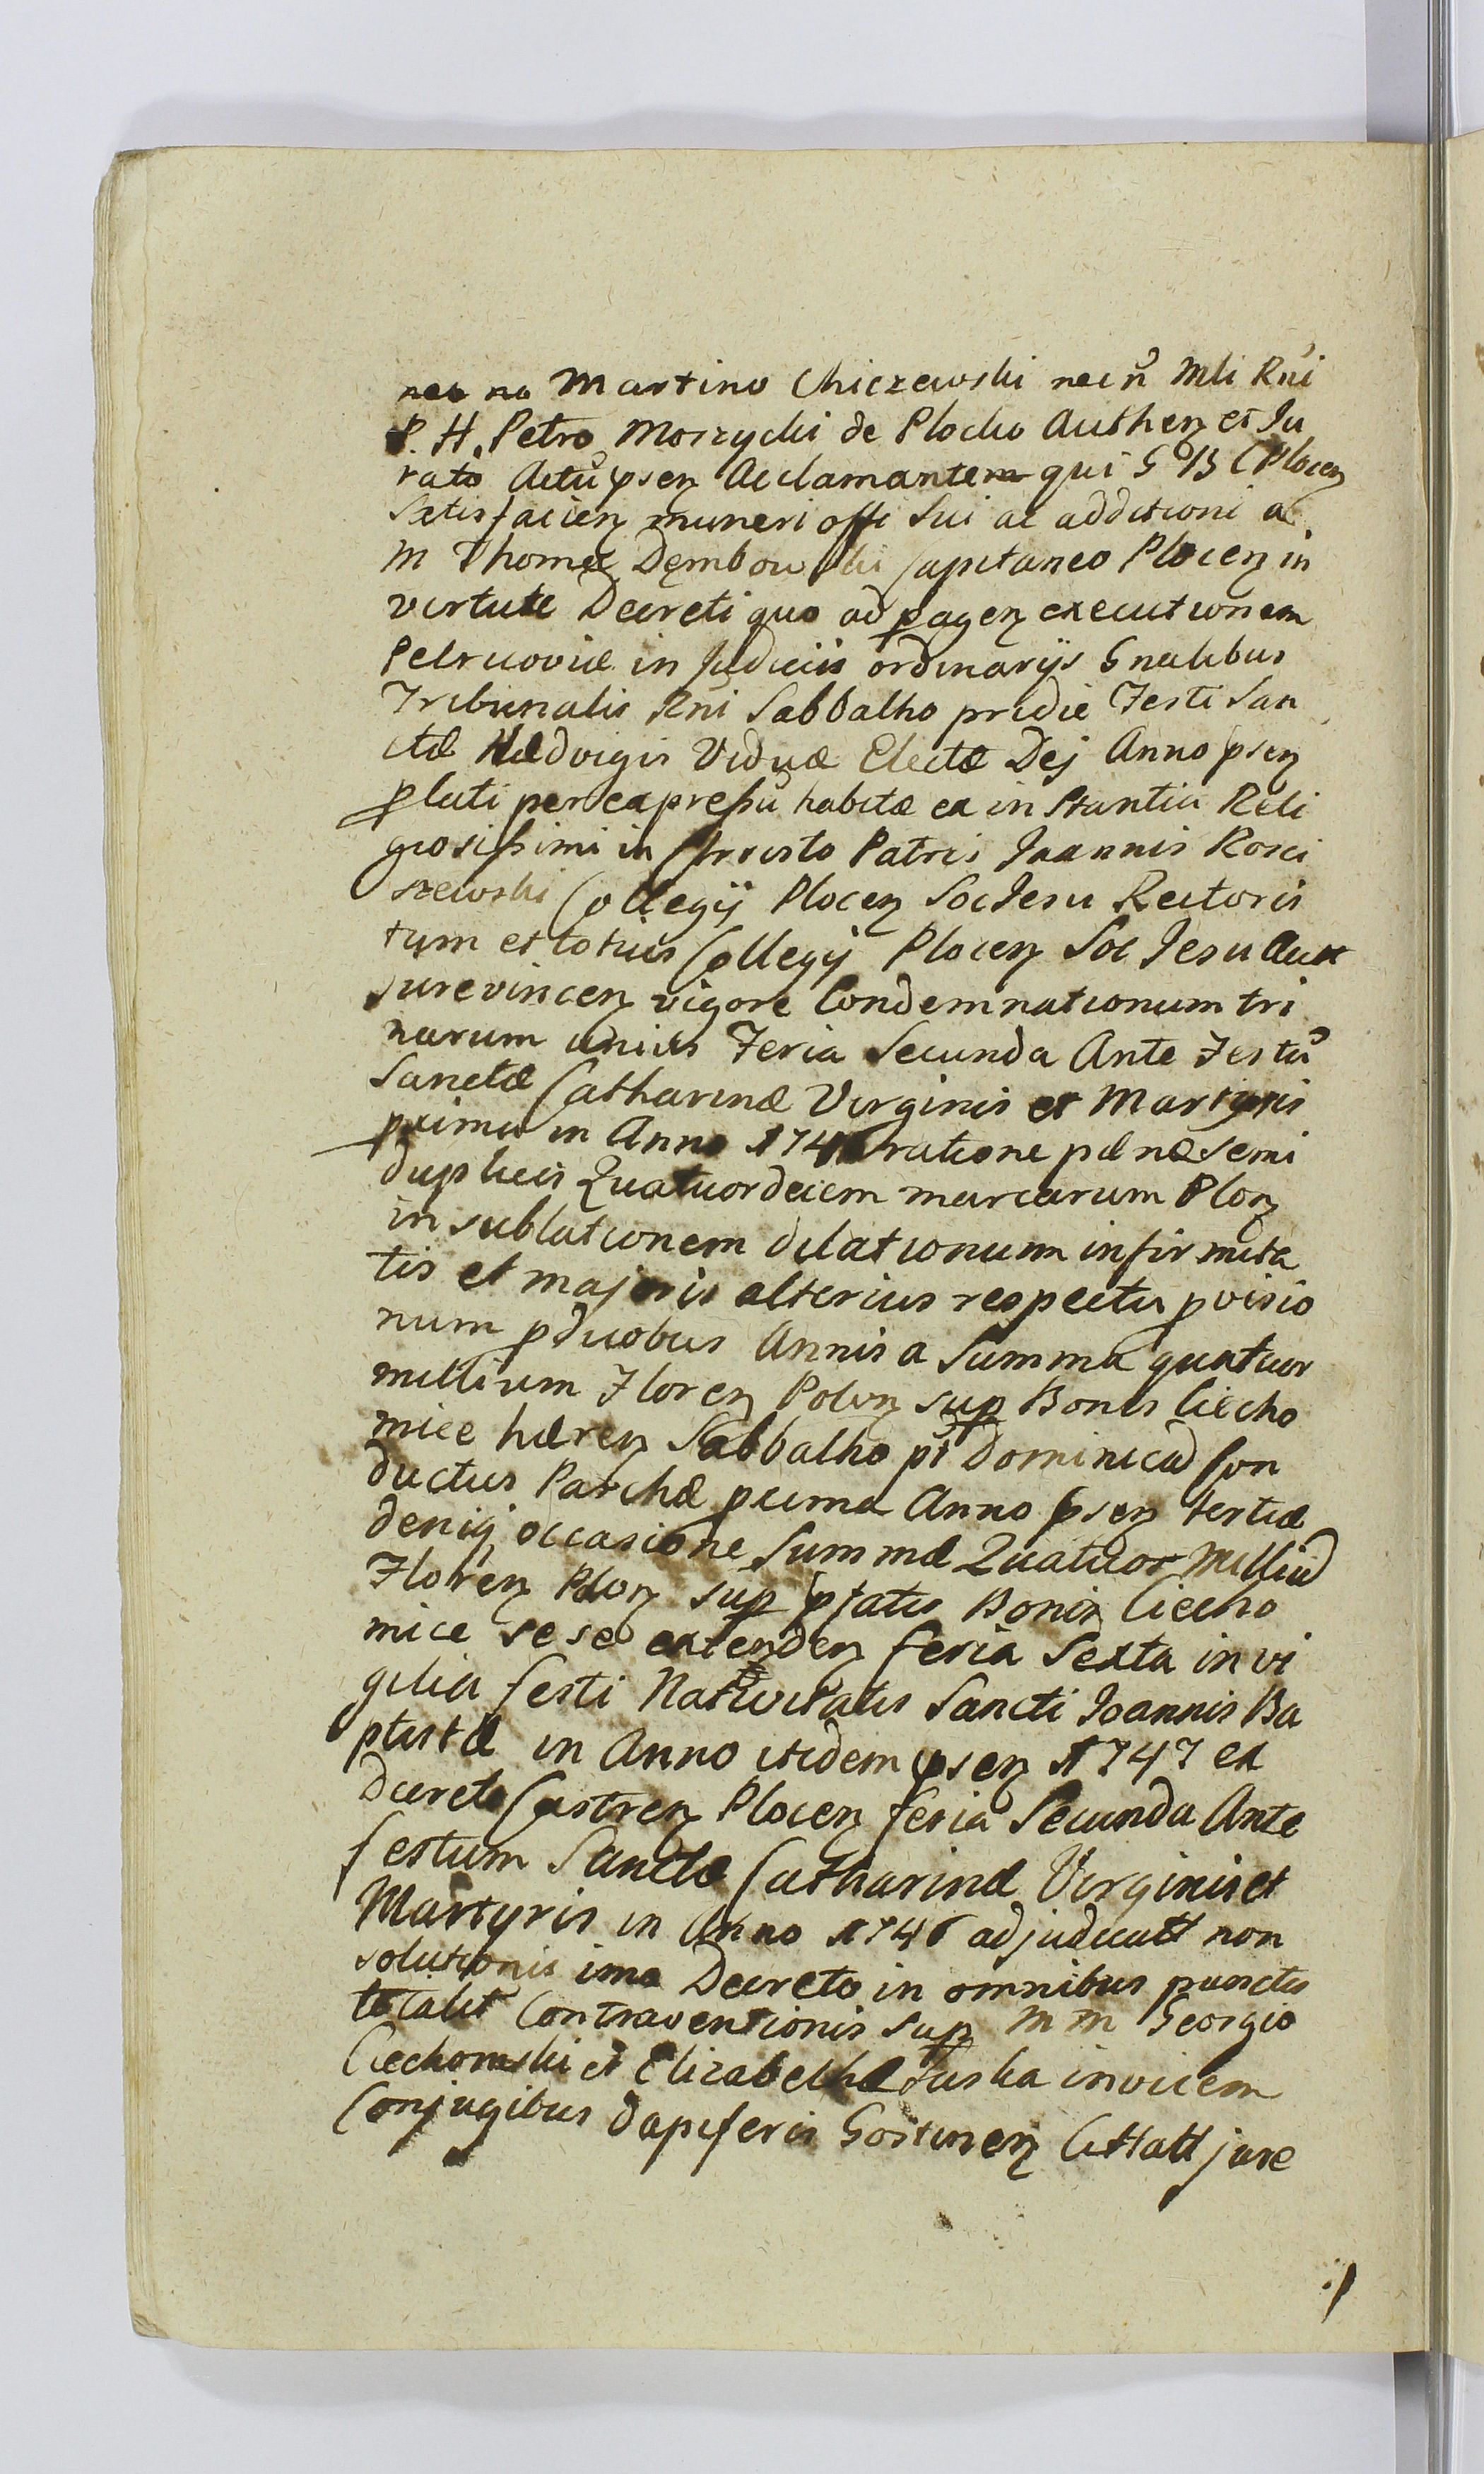 nec no Martino Chiczewski nec n̉ Mli Rn̉i
P. H. Petro Moszycki de Plocko Authen et Ju
rato Actũ psen Acclamantem qui G B C Plocen
Satisfacien muneri offi Sui ac additioni a
M Thomæ Dęmbowski Capitaneo Plocen in
virtute Decreti quo ad pagen executionem
Petricoviæ in Judiciis ordinarijs Gnalibus
Tribunalis Rni Sabbatho pridie Festi San
ctæ Hædvigis Viduæ Electæ Dej Anno psen
pluti per expressũ habitæ ex in Stantia Reli
giosissimi in Christo Patris Joannis Rosci
szewski Collegij Plocen Soc Jesu Rectoris
tum et totius Collegij Plocen Soc Jesu Act
jurevincen vigore Condemnationum tri
narum unius Feria Secunda Ante Festũ
Sanctæ Catharinæ Virginis et Martyris
prima in Anno 1746 ratione pænæ semi
duplicis Quatuordecem marcarum Plon
in sublationem dilationum infirmita
tis et majoris alterius respectu pvisio
num p duobus Annis a Summa quatuor
millium Floren Polon sup Bonis Ciecho
mice hæren Sabbatho pt Dominicã Con
ductus Paschæ prima Anno psen tertiæ
deniq occasione Summæ Quatuor Milliũ
Floren Plon sup pfatis Bonis Ciecho
mice sese extenden feria Sexta in vi
gilia festi Nativitatis Sancti Joannis Ba
ptistæ in Anno itidem psen 1747 ex
Decreto Castren Plocen feria Secunda Ante
festum Sanctæ Catharinæ Virginis et
Martyris in Anno 1746 adjudicatt non
solutionis imo Decreto in omnibus punctis
totalit Contraventionis sup M M Georgio
Ciechomski et Elizabethæ Luska invicem
Conjugibus dapiferis Gostinen Cittatt jure
:/